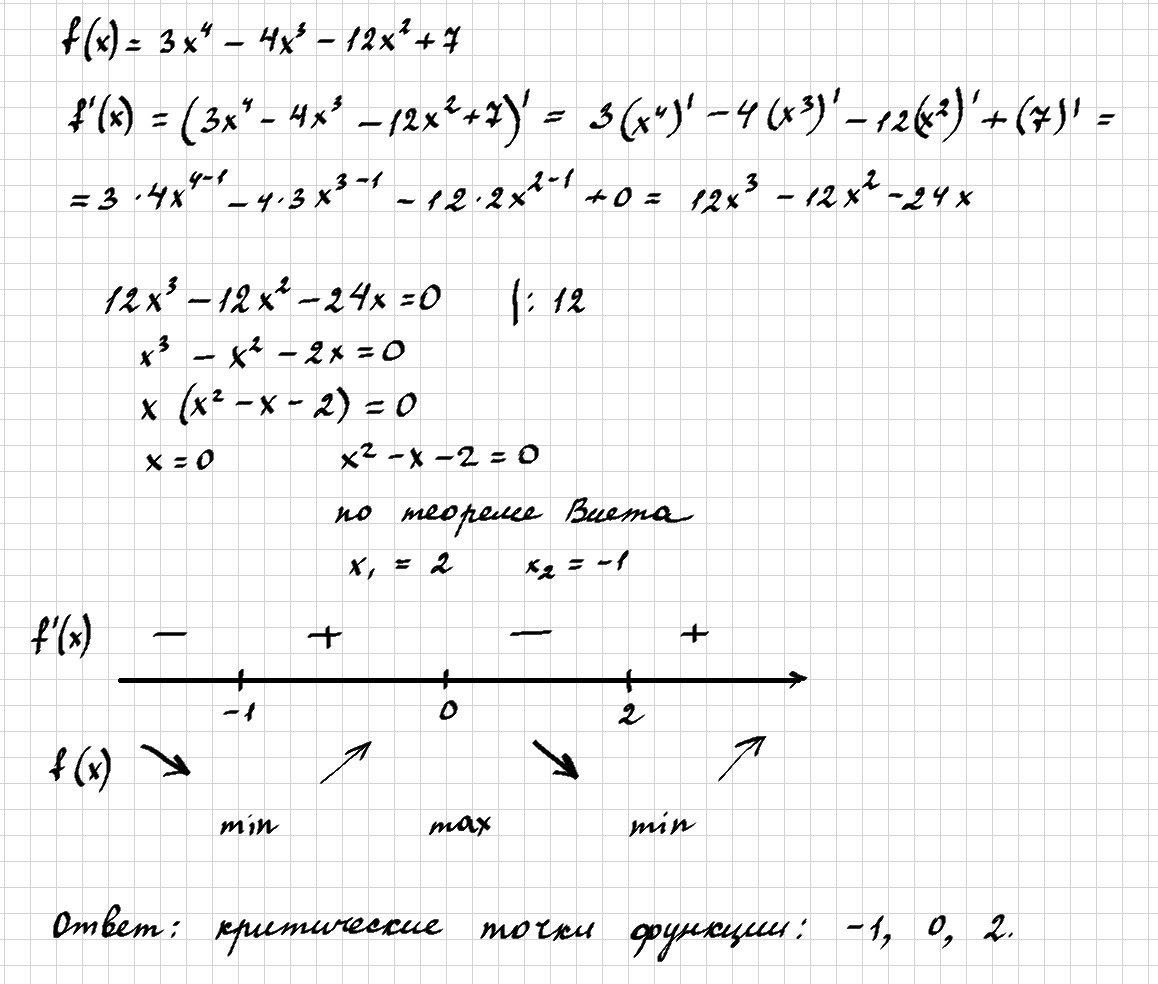 f(x) = 3x⁴ - 4x³ - 12x² + 7
f'(x) = (3x⁴ - 4x³ - 12x² + 7)' = 3(x⁴)' - 4(x³)' - 12(x²)' + (7)' =
= 3 · 4x⁴⁻¹ - 4 · 3x³⁻¹ - 12 · 2x²⁻¹ + 0 = 12x³ - 12x² - 24x
12x³ - 12x² - 24x = 0 |: 12
x³ - x² - 2x = 0
x (x² - x - 2) = 0
x = 0 x² - x - 2 = 0
по теореме Виета
x₁ = 2 x₂ = -1
f'(x) - + - +
-1 0 2
f(x) ↘ ↗ ↘ ↗
min max min
Ответ: критические точки функции: -1, 0, 2.